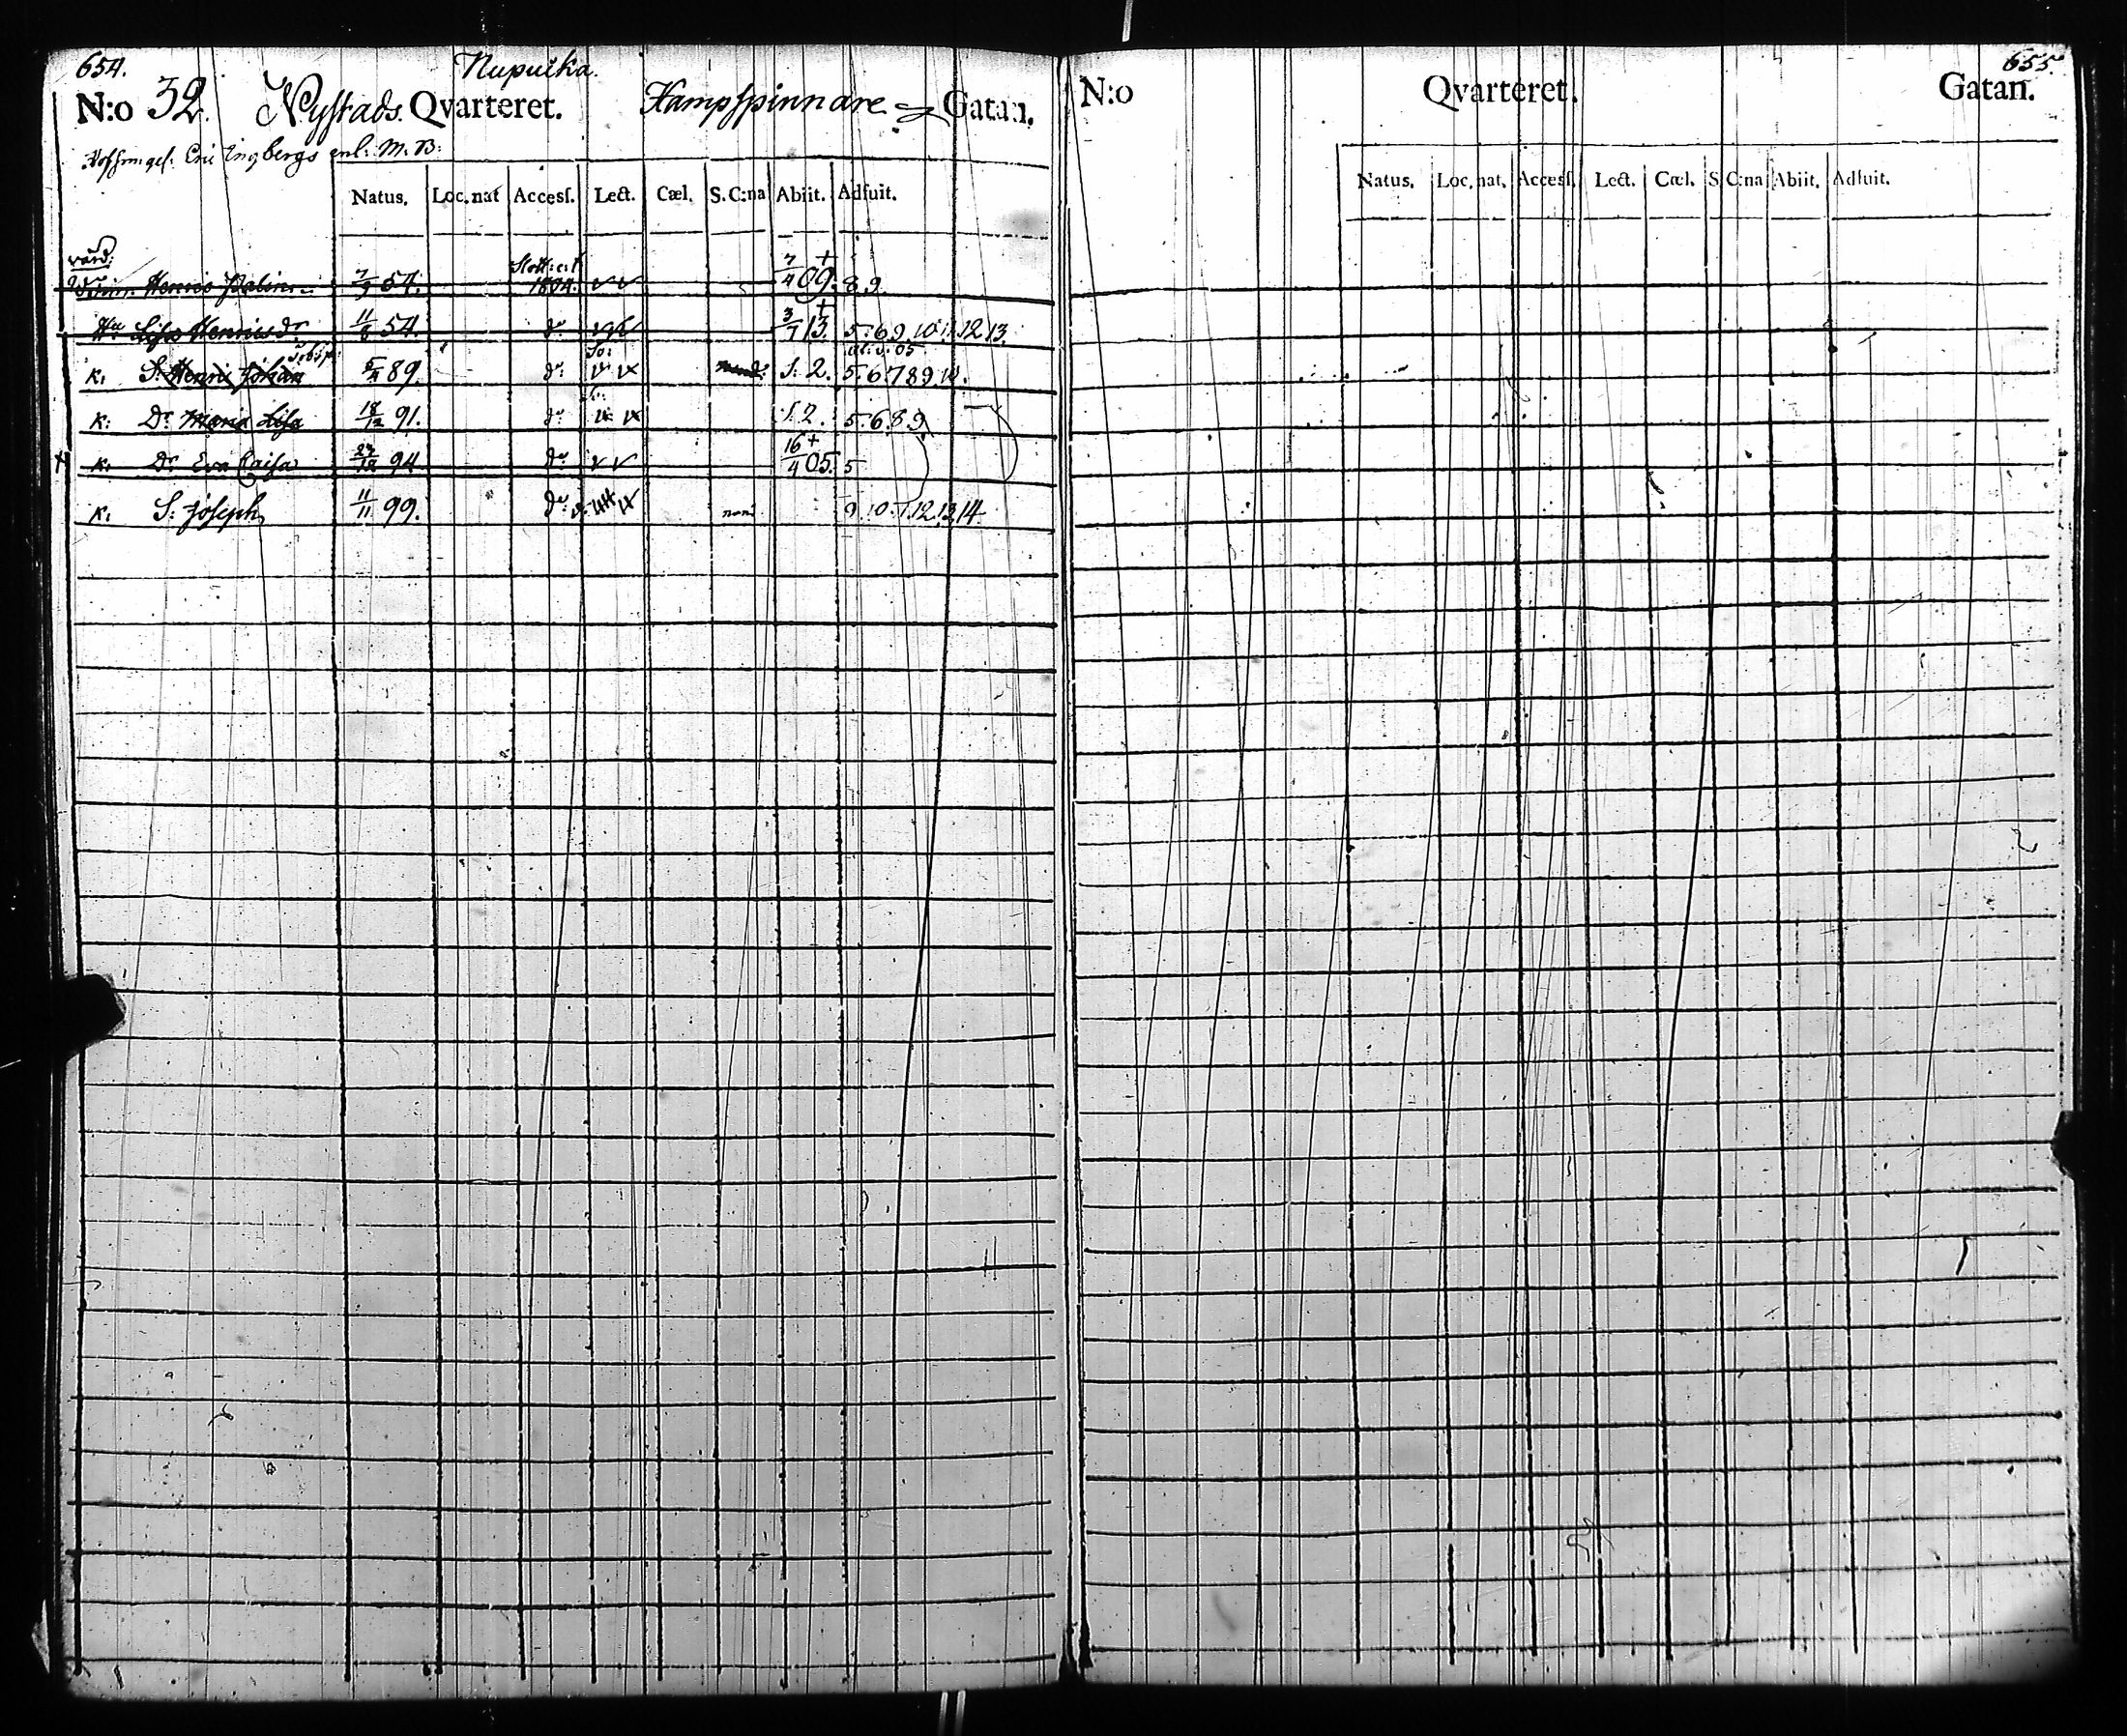 654.
Nupuika.
N:o 32. Nystads Qvarteret. Hampspinnare Gatan.
Eric Engbergs enl: M. B:
Natus. Loc. nat Accesſ. Lect. Cæl. S.C:na Abiit. Adfuit.
värd:
Henric 7/9 54. 1804. 7/4 09. + 8.9.
Hu Lisa Henricsdr 11/8 54. do 3/7 13. + 5. 6. 9. 10. 11. 12. 13.
K. S. Henric Johan 5/4 89. do f. 2. 5. 6. 7. 8. 9. 10.
K: Dr Maria Lisa 18/12 91. do f. 2. 5. 6. 8. 9
K. Dr Eva Caisa 24/12 94 do 16/4 05. + 5
K. S. Joseph 11/11 99. do 9. 10. 11. 12. 13. 14.
655.
N:o Qvarteret. Gatan.
Natus. Loc. nat. Accesſ. Lect. Cæl. S.C:na Abiit. Adfuit.